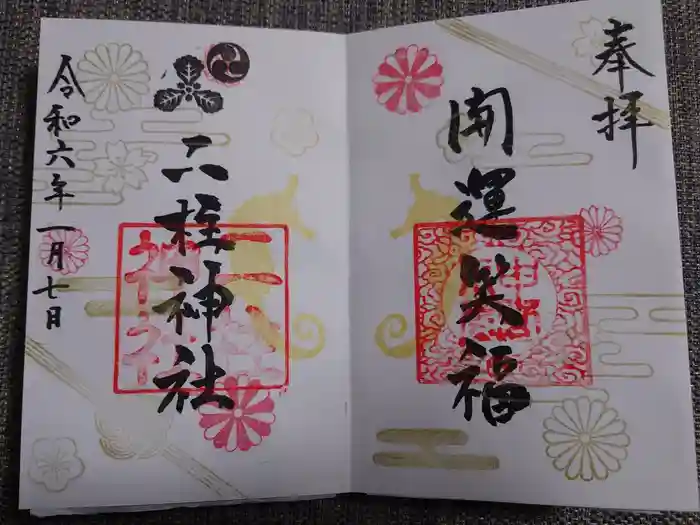 奉拝
開運笑福
二柱神社
令和六年一月七日
二柱
神社